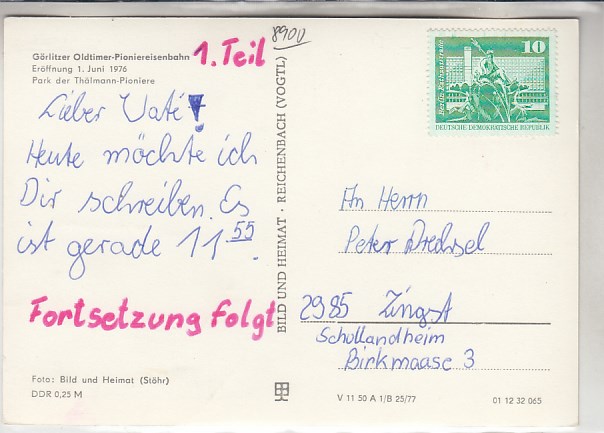 8900
Görlitzer Oldtimer-Pioniereisenbahn
Eröffnung 1. Juni 1976
Park der Thälmann-Pioniere
1. Teil
Lieber Vati!
Heute möchte ich
Dir schreiben. Es
ist gerade 11 55.
Fortsetzung folgt
Foto: Bild und Heimat (Stöhr)
DDR 0,25 M
BILD UND HEIMAT · REICHENBACH (VOGTL)
10
Berlin, Rathausstraße
DEUTSCHE DEMOKRATISCHE REPUBLIK
An Herrn
Peter Drechsel
2985 Zingst
Schullandheim
Birkmaase 3
V 11 50 A 1/B 25/77
01 12 32 065